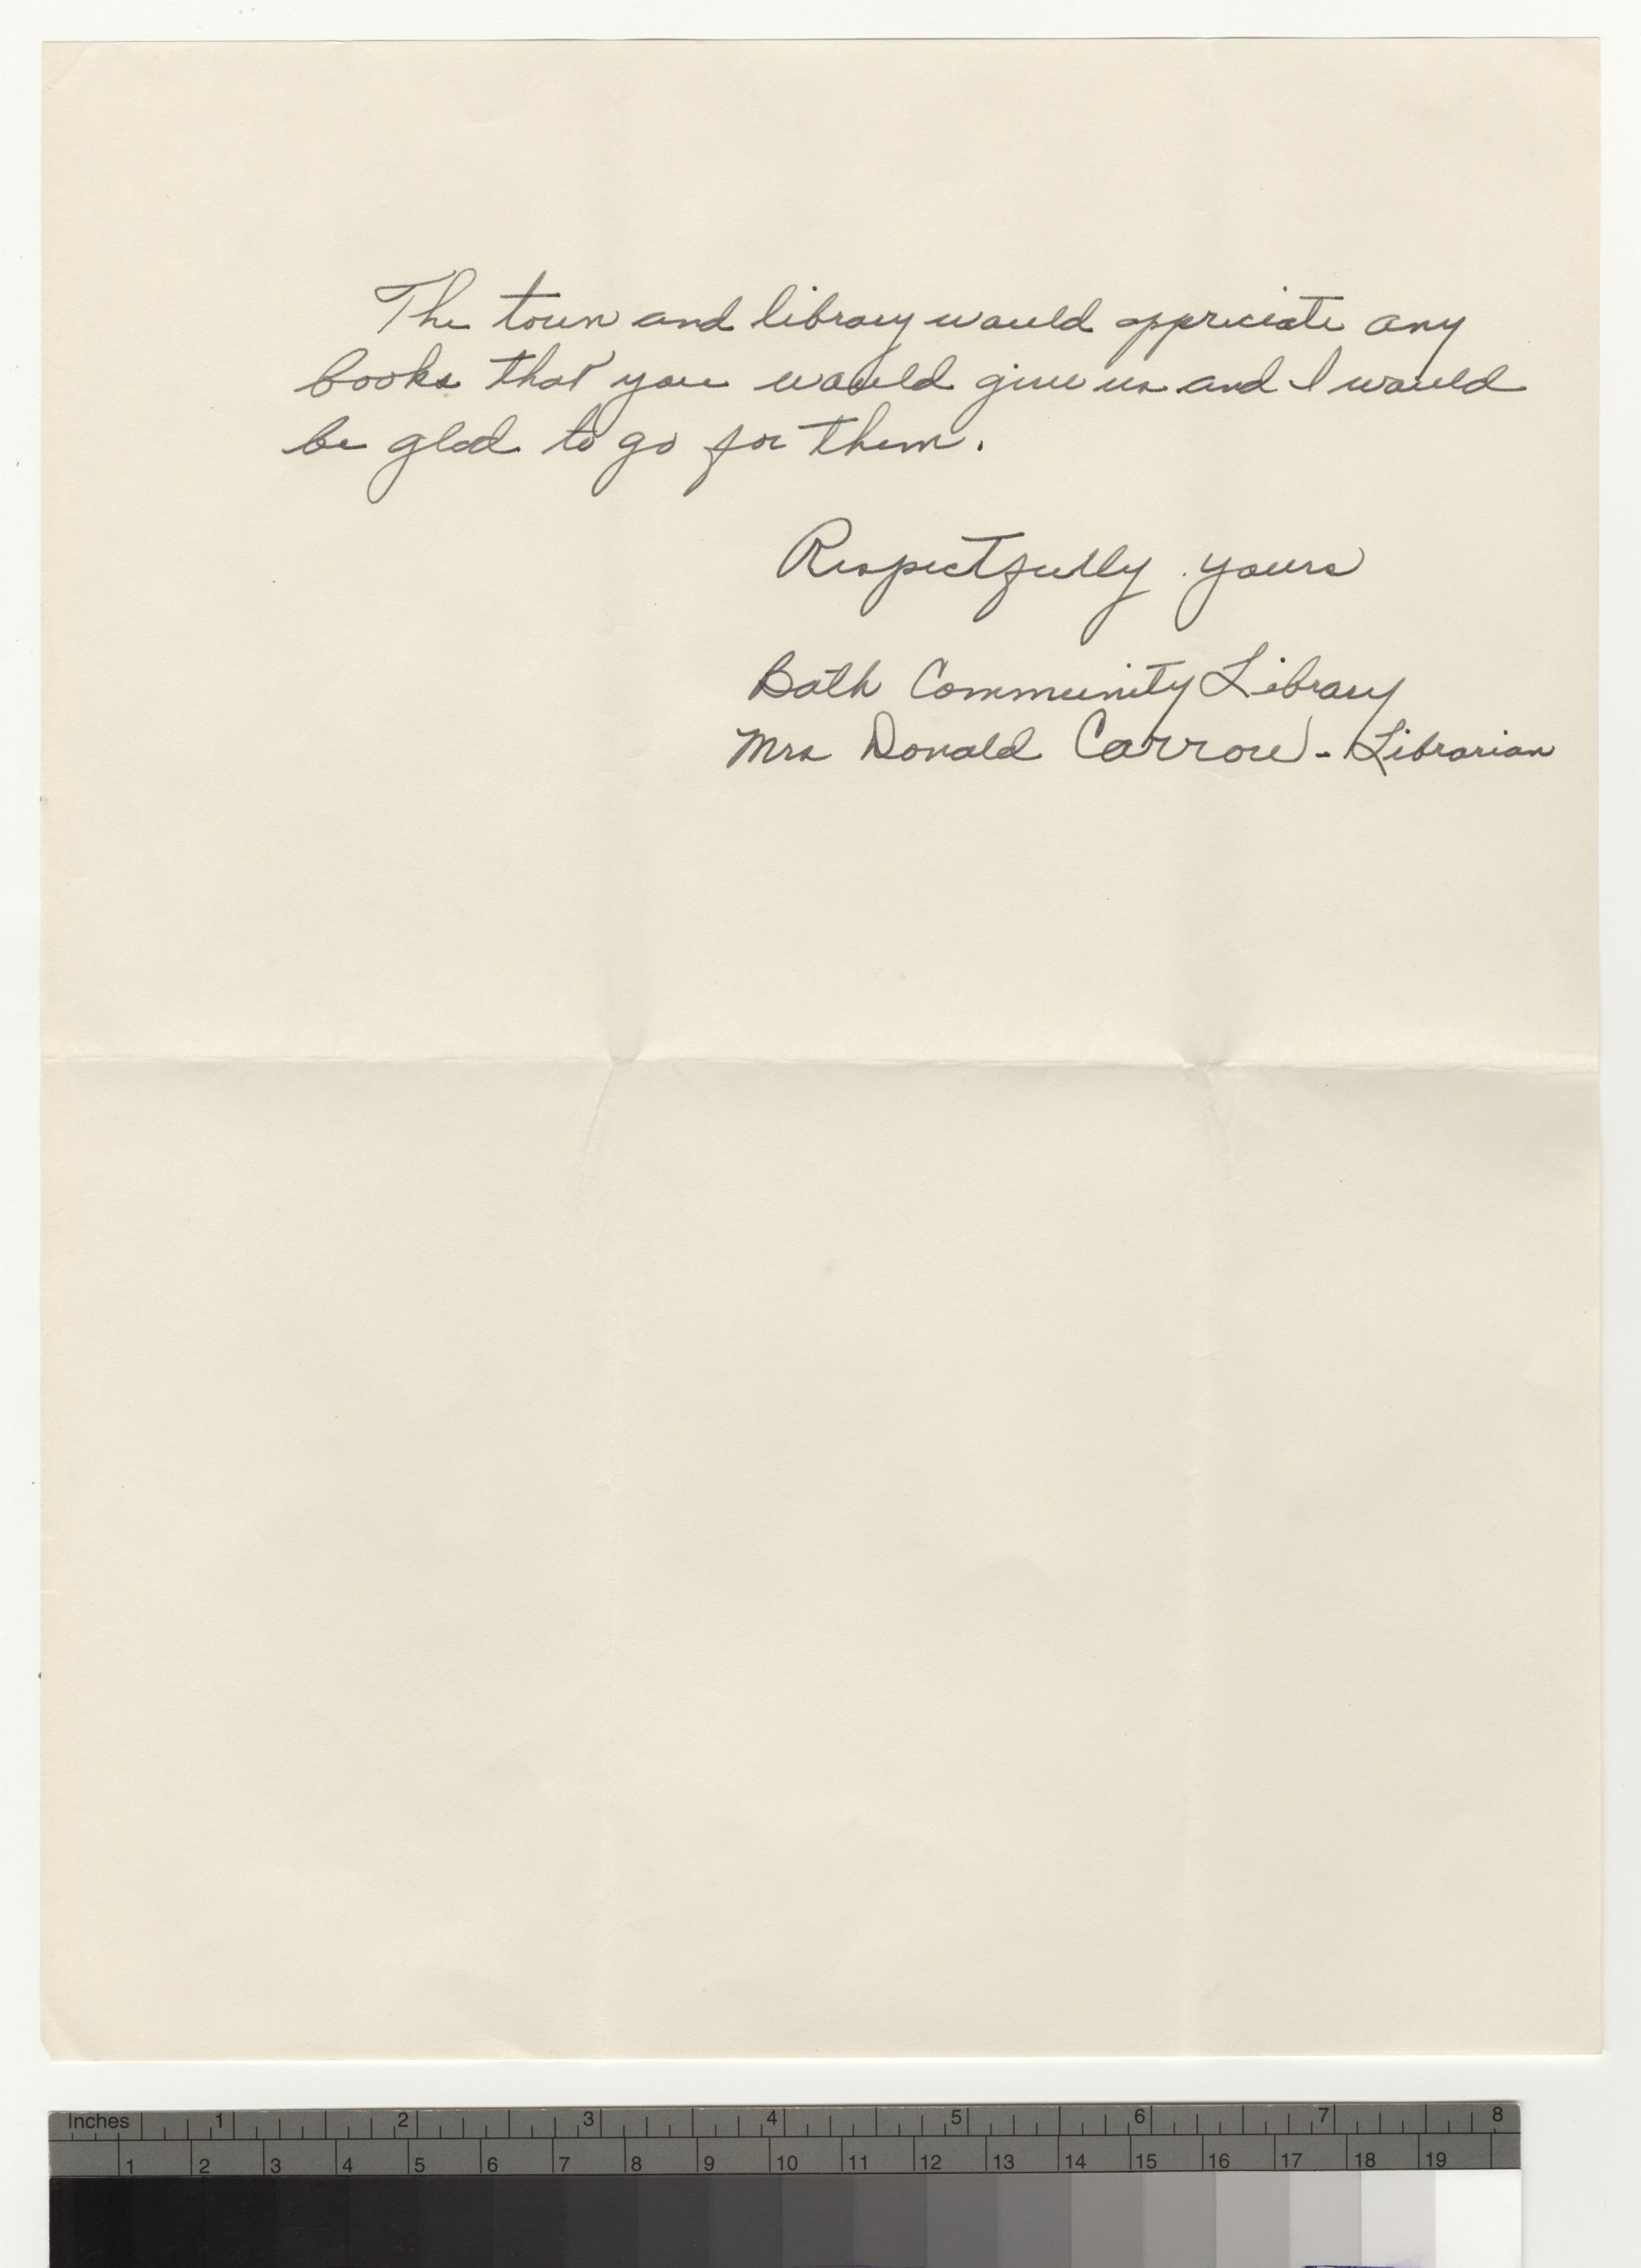 The town and library would appriciate any
books that you would give us and I would
be glad to go for them.
Respectfully yours
Bath Community Library
Mrs Donald Carrow - Librarian
Inches 1 2 3 4 5 6 7 8
1 2 3 4 5 6 7 8 9 10 11 12 13 14 15 16 17 18 19